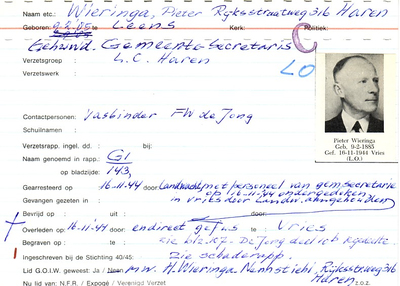 Naam etc.: Wieringa, Pieter Rijksstraatweg 316 Haren
Geboren: 9-2-85 te Leens Kerk: Politiek:
Gehuwd. Gemeente-Secretaris
Verzetsgroep : L.C. Haren
Verzetswerk : LO
Contactpersonen: Vasbinder FW de Jong
Schuilnaam :
Pieter Wieringa
Geb. 9-2-1885
Gef. 16-11-1944 Vries
(L.O.)
Verzetsrapp. ingel. dd. : bij:
Naam genoemd in rapp.: G1
op bladzijde: 143,
Gearresteerd op : 16-11-44 door Landwacht, met personeel van gem secretarie
op 16-11-44 ondergedoken
Gevangen gezeten in : in Vries door Landw. aangehouden
Bevrijd op : uit : door:
Overleden op : 16-11-44 door: en direct gefus te Vries
Begraven op : te :
ingeschreven bij de Stichting 40/45: Zie schaderapp.
Lid G.O.I.W. geweest: Ja / Neen mw. A. Wieringa Nanhstiehl, Rijksstraatweg 316
Haren
Nu lid van: N.F.R. / Expogé / Verenigd Verzet zoz